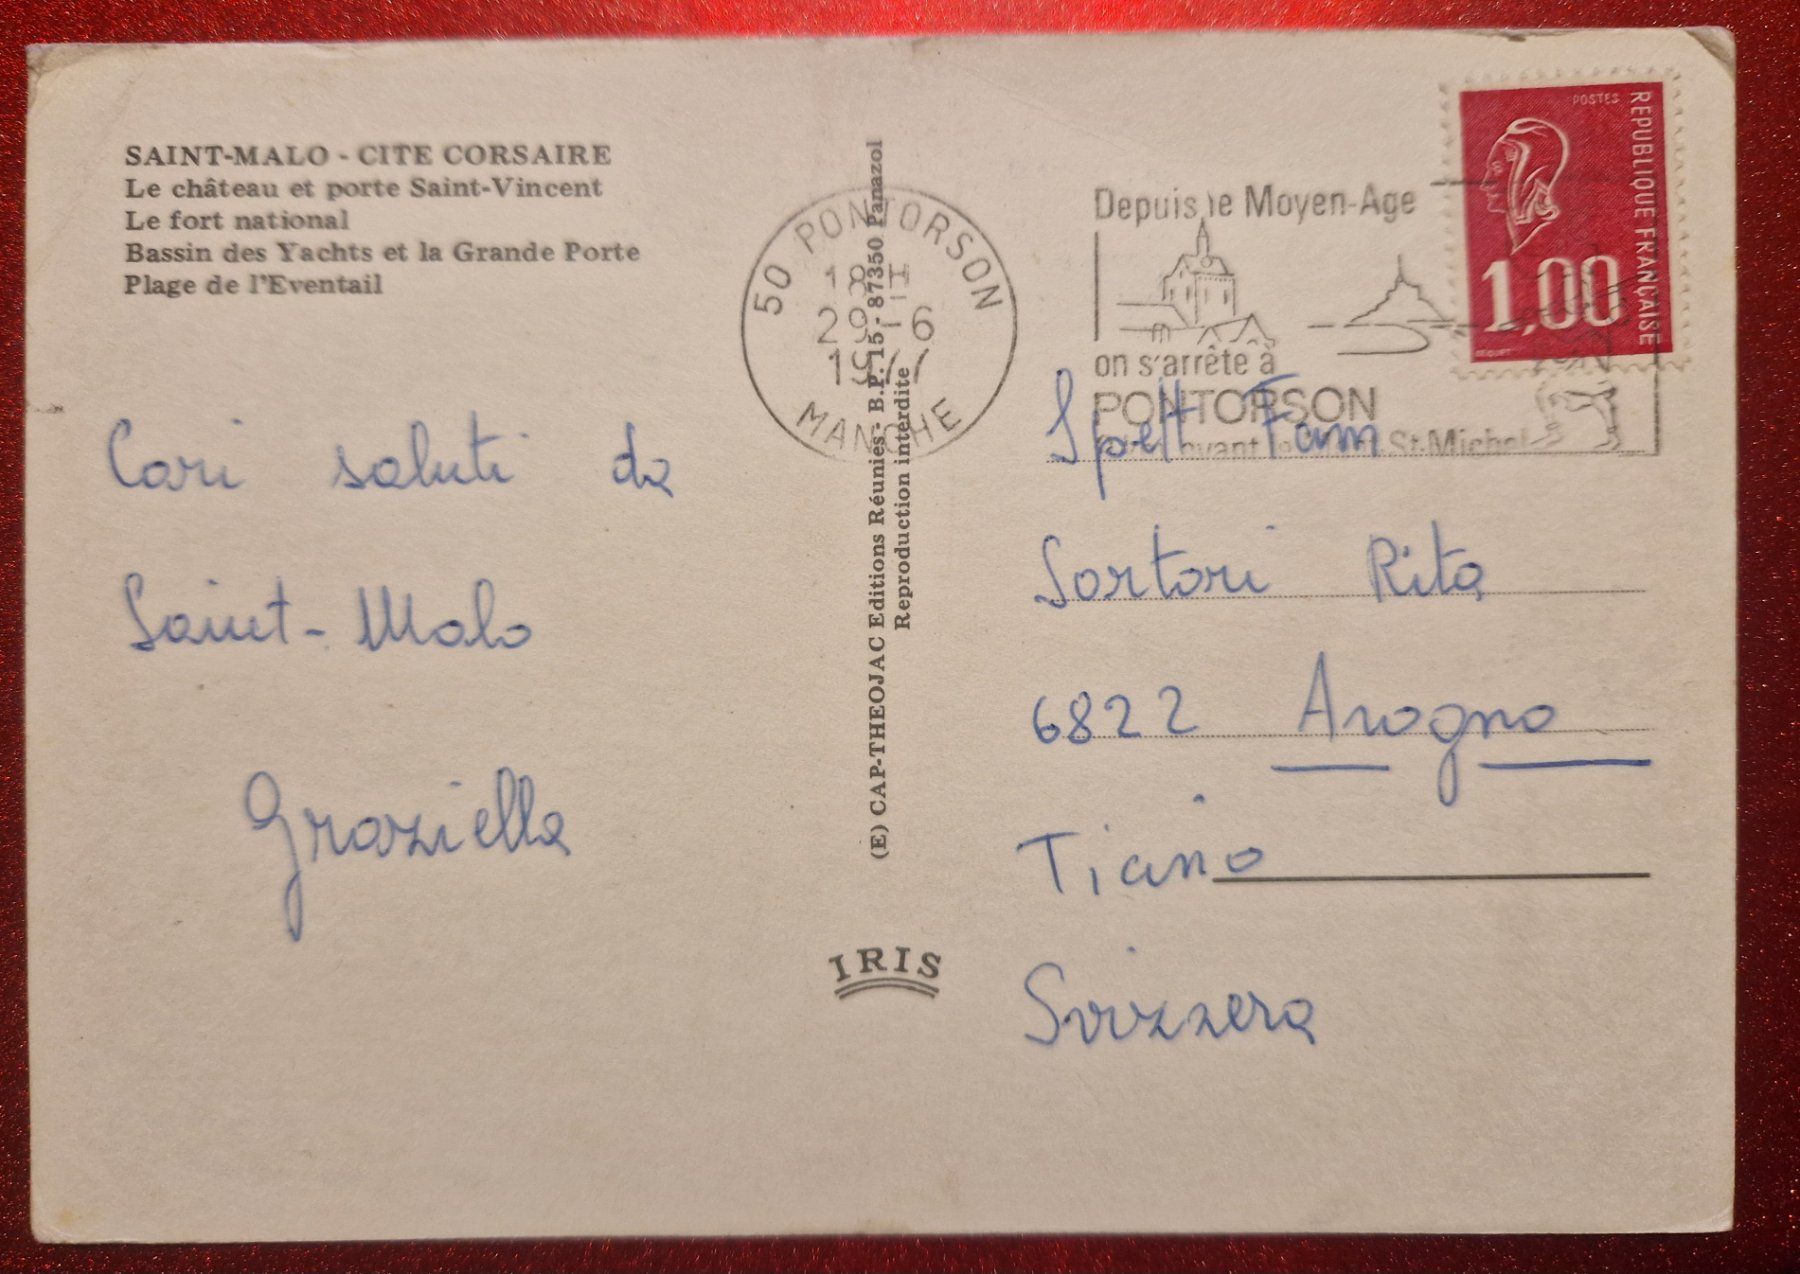 SAINT-MALO - CITE CORSAIRE
Le château et porte Saint-Vincent
Le fort national
Bassin des Yachts et la Grande Porte
Plage de l'Eventail
Cari saluti da
Saint-Malo
Graziella
(E) CAP-THEOJAC Editions Réunies - B.P. 15 - 87350 Panazol
Reproduction interdite
IRIS
50 PONTORSON
18H
29-6
1977
MANCHE
Depuis le Moyen-Age
on s'arrête à
PONTORSON
avant le St-Michel
POSTES
REPUBLIQUE FRANÇAISE
1,00
BEQUET
Spett Fam
Sartori Rita
6822 Arogno
Ticino
Svizzera